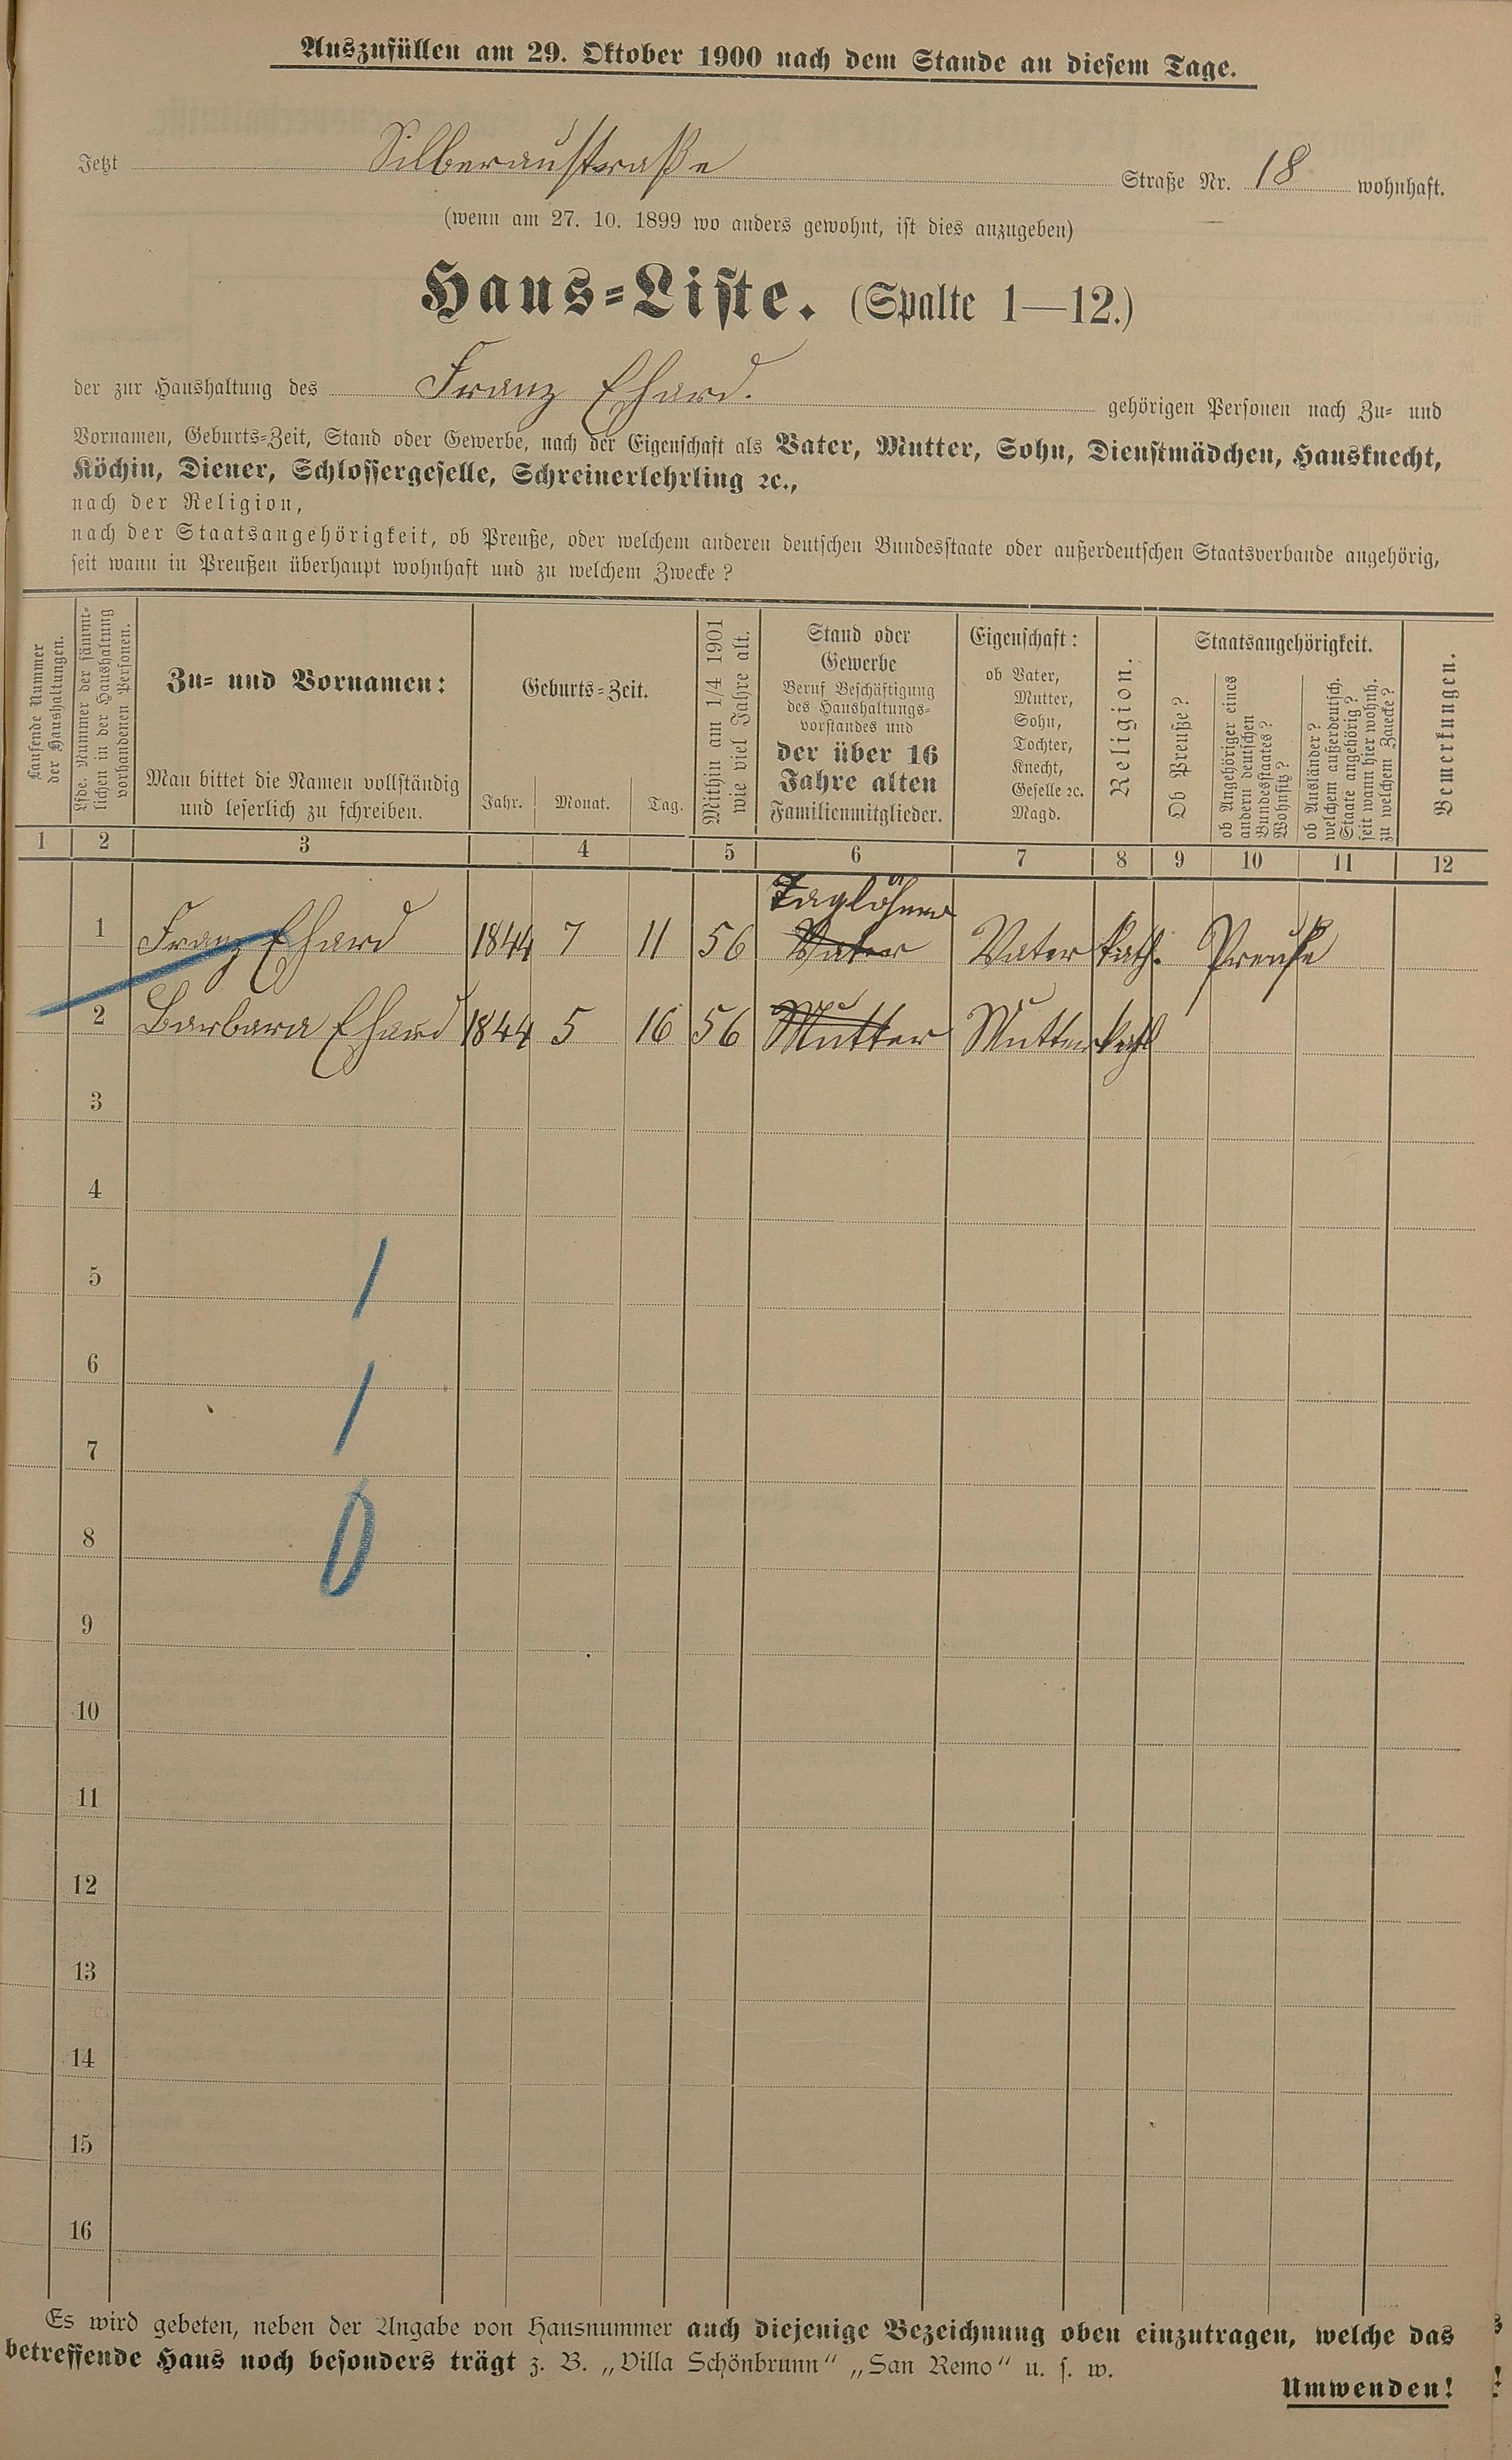 Auszufüllen am 29. Oktober 1900 nach dem Stande an diesem Tage.
Jetzt Silberaustraße Straße Nr. 18 wohnhaft.
(wenn am 27. 10. 1899 wo anders gewohnt, ist dies anzugeben)
Haus-Liste. (Spalte 1—12.)
der zur Haushaltung des Franz Ehard. gehörigen Personen nach Zu- und
Vornamen, Geburts-Zeit, Stand oder Gewerbe, nach der Eigenschaft als Vater, Mutter, Sohn, Dienstmädchen, Hausknecht,
Köchin, Diener, Schlossergeselle, Schreinerlehrling ꝛc.,
nach der Religion,
nach der Staatsangehörigkeit, ob Preuße, oder welchem anderen deutschen Bundesstaate oder außerdeutschen Staatsverbande angehörig,
seit wann in Preußen überhaupt wohnhaft und zu welchem Zwecke?
Laufende Nummer
der Haushaltungen.
Lfde. Nummer der sämmt-
lichen in der Haushaltung
vorhandenen Personen.
Zu- und Vornamen:
Man bittet die Namen vollständig
und leserlich zu schreiben.
Geburts-Zeit.
Jahr. Monat. Tag.
Mithin am 1/4 1901
wie viel Jahre alt.
Stand oder
Gewerbe
Beruf Beschäftigung
des Haushaltungs-
vorstandes und
der über 16
Jahre alten
Familienmitglieder.
Eigenschaft:
ob Vater,
Mutter,
Sohn,
Tochter,
Knecht,
Geselle ꝛc.
Magd.
Religion.
Staatsangehörigkeit.
Ob Preuße?
ob Angehöriger eines
andern deutschen
Bundesstaates?
Wohnsitz?
ob Ausländer?
welchem außerdeutsch.
Staate angehörig?
seit wann hier wohnh.
zu welchem Zwecke?
Bemerkungen.
1 2 3 4 5 6 7 8 9 10 11 12
Taglöhner
1 Franz Ehard 1844 7 11 56 Vater Vater kath. Preuße
2 Barbara Ehard 1844 5 16 56 Mutter Mutter kath
3
4
5
1
6
1
7
8
0
9
10
11
12
13
14
15
16
Es wird gebeten, neben der Angabe von Hausnummer auch diejenige Bezeichnung oben einzutragen, welche das
betreffende Haus noch besonders trägt z. B. „Villa Schönbrunn“ „San Remo“ u. s. w.
Umwenden!